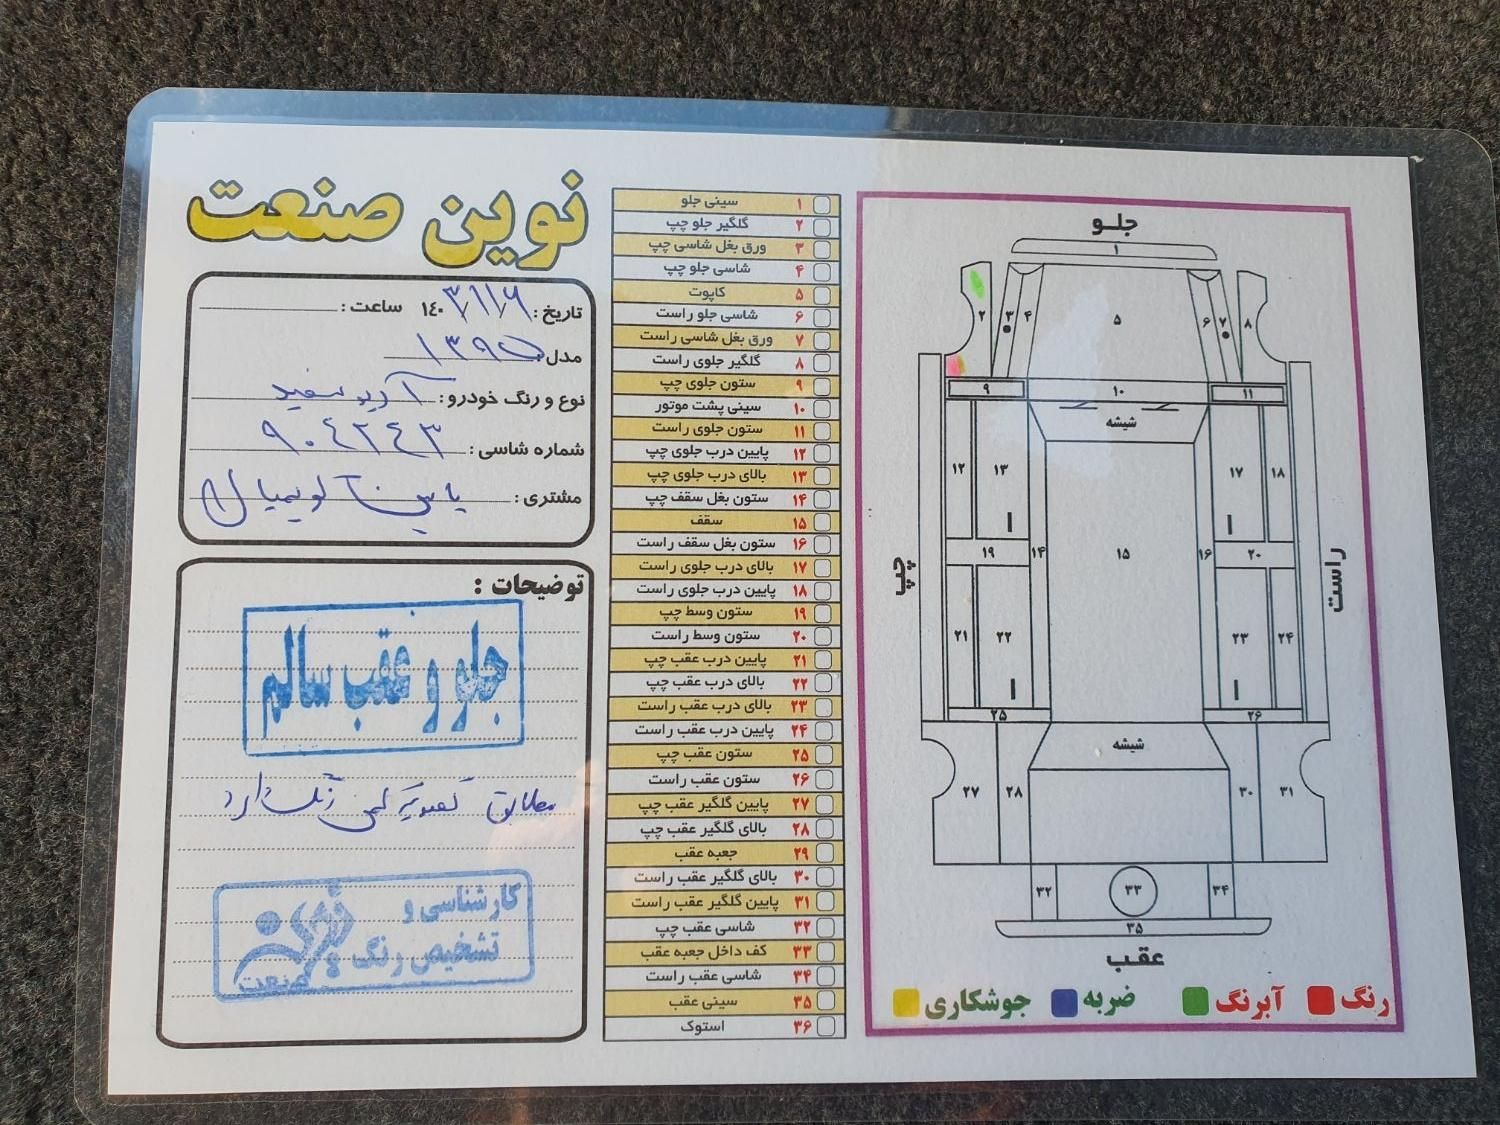 نوین صنعت
تاریخ : ۱۴۰۳/۱/۶ ساعت :
مدل ۱۳۹۵
نوع و رنگ خودرو : سفید
شماره شاسی : ۹۰۴۲۴۳
مشتری :
توضیحات :
جلو و عقب سالم
مطابق تصویر کمی رنگ دارد
کارشناسی و
تشخیص رنگ
صنعت
۱ سینی جلو
۲ گلگیر جلو چپ
۳ ورق بغل شاسی چپ
۴ شاسی جلو چپ
۵ کاپوت
۶ شاسی جلو راست
۷ ورق بغل شاسی راست
۸ گلگیر جلوی راست
۹ ستون جلوی چپ
۱۰ سینی پشت موتور
۱۱ ستون جلوی راست
۱۲ پایین درب جلوی چپ
۱۳ بالای درب جلوی چپ
۱۴ ستون بغل سقف چپ
۱۵ سقف
۱۶ ستون بغل سقف راست
۱۷ بالای درب جلوی راست
۱۸ پایین درب جلوی راست
۱۹ ستون وسط چپ
۲۰ ستون وسط راست
۲۱ پایین درب عقب چپ
۲۲ بالای درب عقب چپ
۲۳ بالای درب عقب راست
۲۴ پایین درب عقب راست
۲۵ ستون عقب چپ
۲۶ ستون عقب راست
۲۷ پایین گلگیر عقب چپ
۲۸ بالای گلگیر عقب چپ
۲۹ جعبه عقب
۳۰ بالای گلگیر عقب راست
۳۱ پایین گلگیر عقب راست
۳۲ شاسی عقب چپ
۳۳ کف داخل جعبه عقب
۳۴ شاسی عقب راست
۳۵ سینی عقب
۳۶ استوک
جلـو
۱
۲ ۳ ۴ ۵ ۶ ۷ ۸
۹ ۱۰ ۱۱
شیشه
۱۲ ۱۳ ۱۷ ۱۸
چپ ۱۹ ۱۴ ۱۵ ۱۶ ۲۰ راست
۲۱ ۲۲ ۲۳ ۲۴
۲۵ ۲۶
شیشه
۲۷ ۲۸ ۳۰ ۳۱
۳۲ ۳۳ ۳۴
۳۵
عقـب
رنگ آبرنگ ضربه جوشکاری